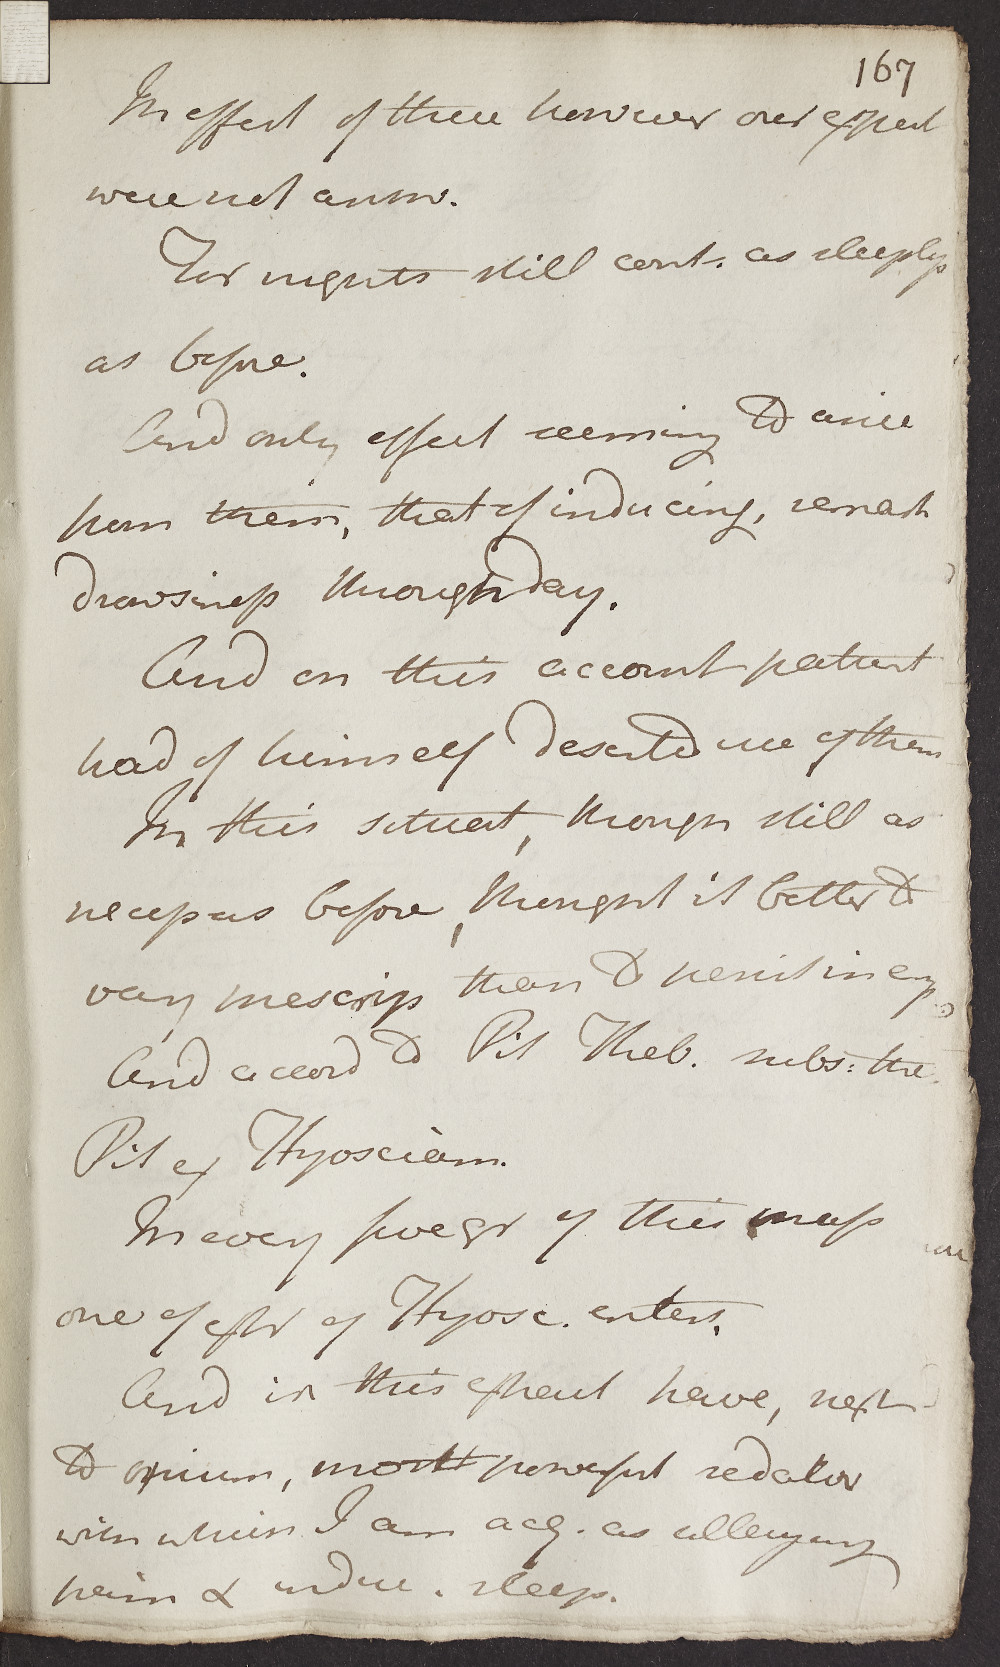 167
In effect of these however our expect
were not answ.
For nights still cont. as sleepless
as before.
And only effect seeming to arise
from them, that of inducing, remark
drowsiness through day.
And on this account patient
had of himself deserted use of them
In this situat, though still as
necess as before, thought it better to
vary prescrip than to persist in
And accord to Pil Theb. subs: the
Pil ex Hyosciam.
In every five gr of this mass
one of extr of Hyosc. enters.
And in this extract have, next
to opium, most powerful sedative
with which I am acq. as allaying
pain & induc. sleep.